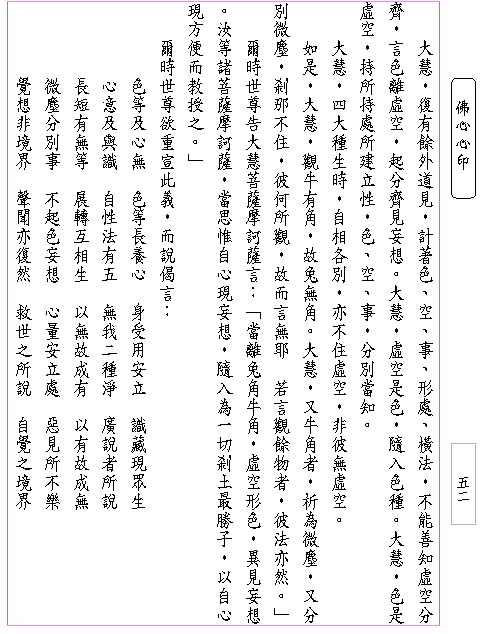 佛心心印
五二
大慧，復有餘外道見，計著色、空、事、形處、橫法，不能善知虛空分
齊，言色離虛空，起分齊見妄想。大慧，虛空是色，隨入色種。大慧，色是
虛空，持所持處所建立性，色、空、事，分別當知。
大慧，四大種生時，自相各別，亦不住虛空，非彼無虛空。
如是，大慧，觀牛有角，故兔無角。大慧，又牛角者，析為微塵，又分
別微塵，剎那不住，彼何所觀，故而言無耶　若言觀餘物者，彼法亦然。」
爾時世尊告大慧菩薩摩訶薩言：「當離兔角牛角，虛空形色，異見妄想
。汝等諸菩薩摩訶薩，當思惟自心現妄想，隨入為一切剎土最勝子，以自心
現方便而教授之。」
爾時世尊欲重宣此義，而說偈言：
色等及心無　色等長養心　身受用安立　識藏現眾生
心意及與識　自性法有五　無我二種淨　廣說者所說
長短有無等　展轉互相生　以無故成有　以有故成無
微塵分別事　不起色妄想　心量安立處　惡見所不樂
覺想非境界　聲聞亦復然　救世之所說　自覺之境界